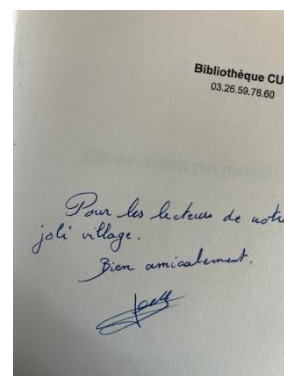 Bibliothèque CU
03.26.59.78.60
Pour les lecteurs de notre
joli village.
Bien amicalement.